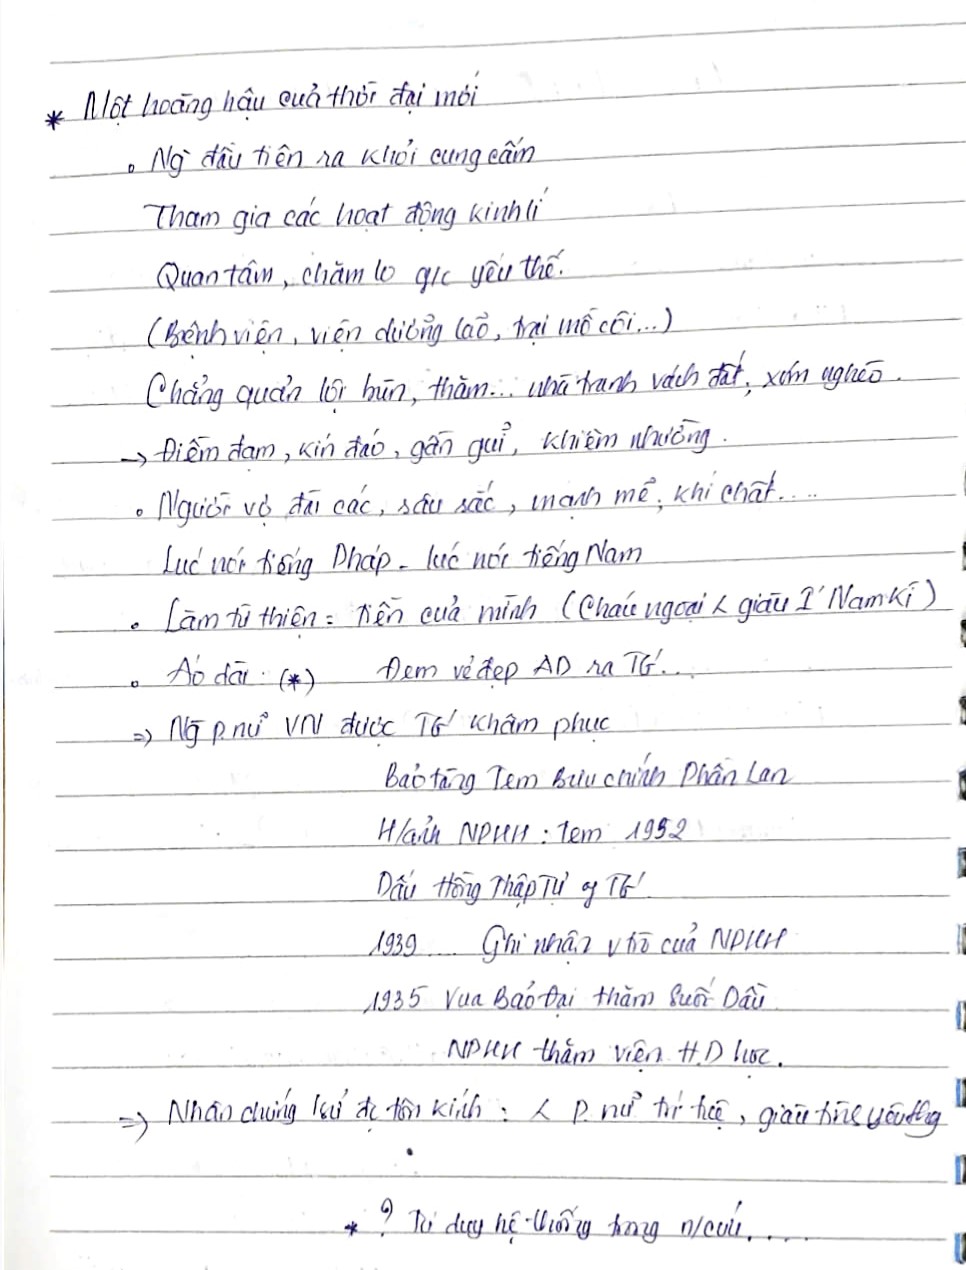 * Một hoàng hậu của thời đại mới
. Ng` đầu tiên ra khỏi cung cấm
Tham gia các hoạt động kinh lí
Quan tâm, chăm lo g/c yếu thế.
(Bệnh viện, viện dưỡng lão, trại mồ côi...)
Chẳng quản lội bùn, thăm... nhà tranh vách đất, xóm nghèo.
→ Điềm đạm, kín đáo, gần gũi, khiêm nhường.
. Người vợ đài các, sâu sắc, mạnh mẽ, khí chất....
Lúc nói tiếng Pháp - lúc nói tiếng Nam
. Làm từ thiện = tiền của mình (Cháu ngoại < giàu I' Nam Kì)
. Áo dài: (*) Đem vẻ đẹp AD ra TG'...
=> Ng` p.nữ VN được TG' khâm phục
Bảo tàng Tem Bưu chính Phần Lan
H/ảnh NPHH: Tem 1952
Dấu Hồng Thập Tự TG'
1939 ... Ghi nhận v trò của NPHH
1935 Vua Bảo Đại thăm Suối Dầu
NPHH thăm viện H.D học.
=> Nhân chứng lsử đc tôn kính: < p. nữ trí tuệ, giàu tình yêu thg
* ? Tư duy hệ thống trong n/cứu.....